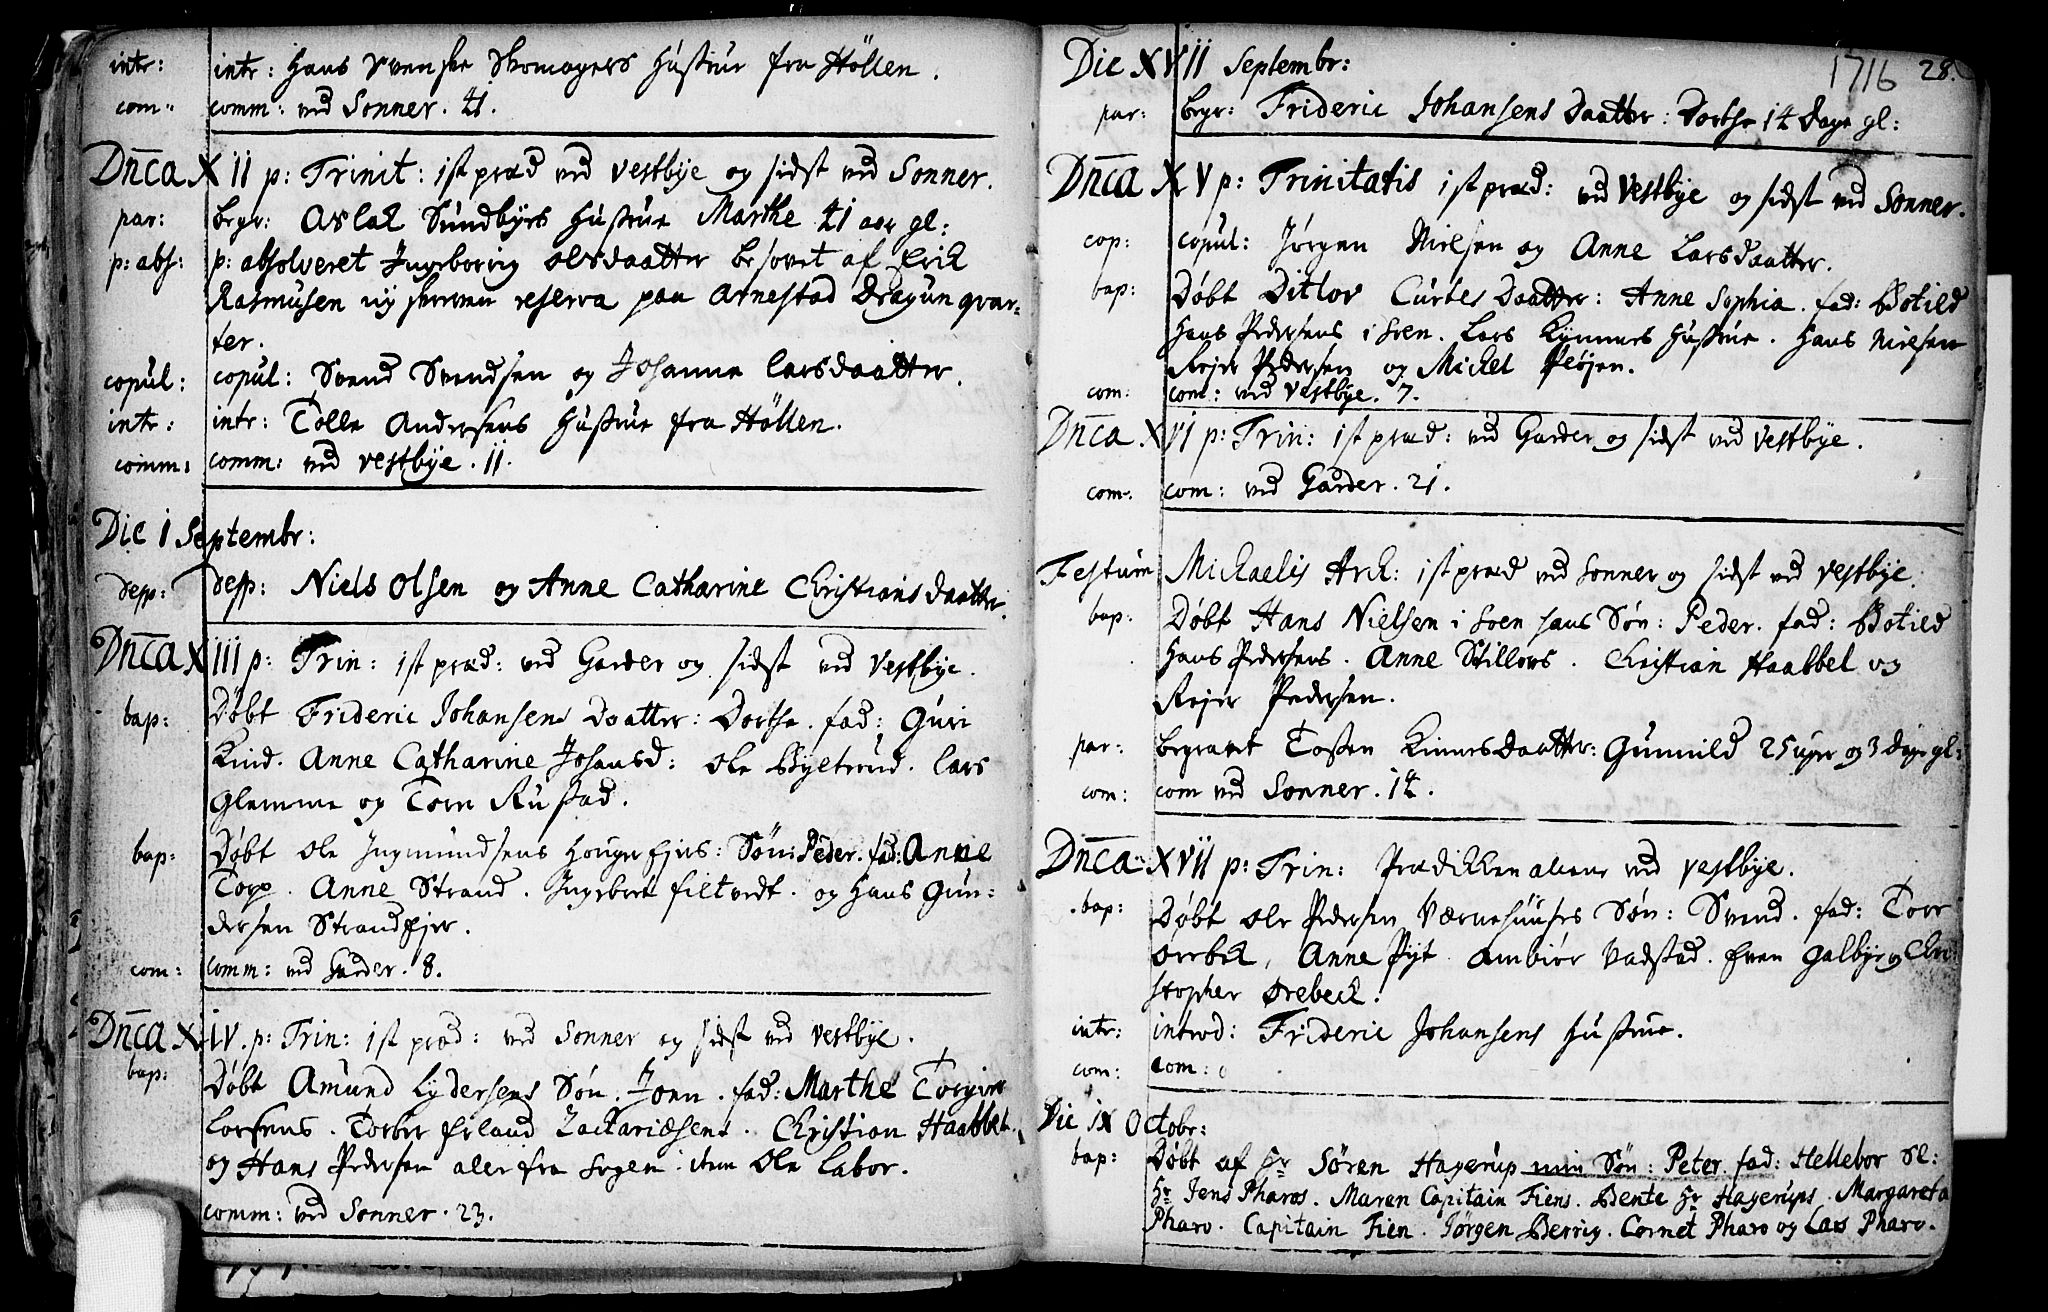 intr: intr: Hans Svenske Skomagers Hustrue fra Höllen.
com: comm: ved Sonner. 41.
Dn̄ca XII p: Trinit: ist præd ved Vestbye og sidst ved Sonner.
par: begr: Aslak Sundbyes Hustrue Marthe 41 aar gl:
p: abs: p: absolveret Ingeborrig Olsdaatter besovet af Erick
Rasmusen ny skreven reserva paa Arnestad Dragun qvar-
ter.
copul: copul: Svend Svendsen og Johanne Larsdaatter.
intr: intr: Tolle Andersens Hustrue fra Höllen.
comm: comm: ved Vestbye. 11.
Die 1 Septembr:
desp: desp: Niels Olsen og Anne Catharine Christiansdaatter.
Dn̄ca XIII p: Trin: ist præd: ved Garder og sidst ved Vestbye.
bap: Døbt Frideric Johansens Daatter: Dorthe. fad: Guri
Kind. Anne Catharine Johansd: Ole Byltrud. Lars
Glemme og Tore Rustad.
bap: Døbt Ole Ingmundsens Hougerfjes: Søn: Peder. fad: Anne
Torp. Anne Strand. Ingebret Filtvedt. og Hans Gun-
dersen Strandfjer.
com: comm: ved Garder. 8.
Dn̄ca XIV. p: Trin: ist præd: ved Sonner og sidst ved Vestbye.
bap: Døbt Amund Lydersens Søn. Jonn. fad: Marthe Torgier
Lorsens. Torber Erland Zachariæsens. Christian Haabbel.
og Hans Pedersen aler fra Sogen: item Ole Labor.
comm: ved Sonner. 23.
1716 28.
Die XVII Septembr:
par: begr: Frideric Johansens Daatter: Dorthe 14 Dage gl:
Dn̄ca XV p: Trinitatis ist præd: ved Vestbye og sidst ved Sonner.
cop: copul: Jørgen Nielsen og Anne Larsdaatter.
bap: Døbt Ditlov Curtes Daatter: Anne Sophia. fad: Botild
Hans Pedersens i Soen. Lars Kynnes Hustrue. Hans Nielsen
Rejer Pedersen og Mickel Pløjen.
com: com: ved Vestbye. 7.
Dn̄ca XVI p: Trin: ist præd: ved Garder og sidst ved Vestbye.
com: com: ved Garder. 21.
Festum Michaelis Arch: ist præd ved Sonner og sidst ved Vestbye.
bap: Døbt Hans Nielsen i Soen hans Søn: Peder. fad: Botild
Hans Pedersens. Anne Stillovs. Christian Haabbel og
Rejer Pedersen.
par: begravet Tosten Kinnes Daatter: Gunnild 25 uger og 3 dage gl:
com: com ved Sonner. 14.
Dn̄ca XVII p: Trin: Prædicken alene ved Vestbye.
bap: Døbt Ole Pedersen Værnehuuses Søn: Svend. fad: Tore
Orebek, Anne Pyt. Ambiør Vadstad. Even Galbye og Chri
stopher Ørebeck.
intr: introd: Frideric Johansens Hustrue.
com: com: 0
Die IX Octobr:
bap: Døbt af Hr Søren Hagerup min Søn: Peter. fad: Hellebor Sl:
Hr Jens Pharos. Maren Capitain Fiens. Bente Hr Hagerups. Margareta
Pharo. Capitain Fien. Jørgen Berrig. Cornet Pharo og Lars Pharo.